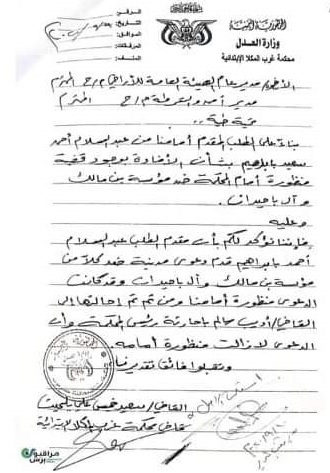 الجمهورية اليمنية
وزارة العدل
محكمة غرب المكلا الابتدائية
الرقم:
التاريخ:
الموافق:
المرفقات:
الأخ/ مدير عام الهيئة العامة للأراضي م/ح المحترم
مدير أمن م/ح المحترم
تحية طيبة ..
بناء على الطلب المقدم أمامنا من عبدالسلام أحمد
سعيد بابراهيم بشأن الأفادة بوجود قضية
منظورة أمام المحكمة ضد مؤسسة بن مالك
وآل باحيدان .
وعليه
فإننا نؤكد لكم بأن مقدم الطلب عبدالسلام
أحمد بابراهيم قدم دعوى مدنية ضد كلا من
مؤسسة بن مالك وآل باحيدان وقد كانت
الدعوى منظورة أمامنا ومن ثم تم إحالتها إلى
القاضي/ أديب سالم باحارثة رئيس المحكمة وأن
الدعوى لازالت منظورة أمامه
وتقبلوا فائق تقديرنا
القاضي/ سعيد خميس علي
قاضي محكمة غرب المكلا الابتدائية
مراقبون
برس